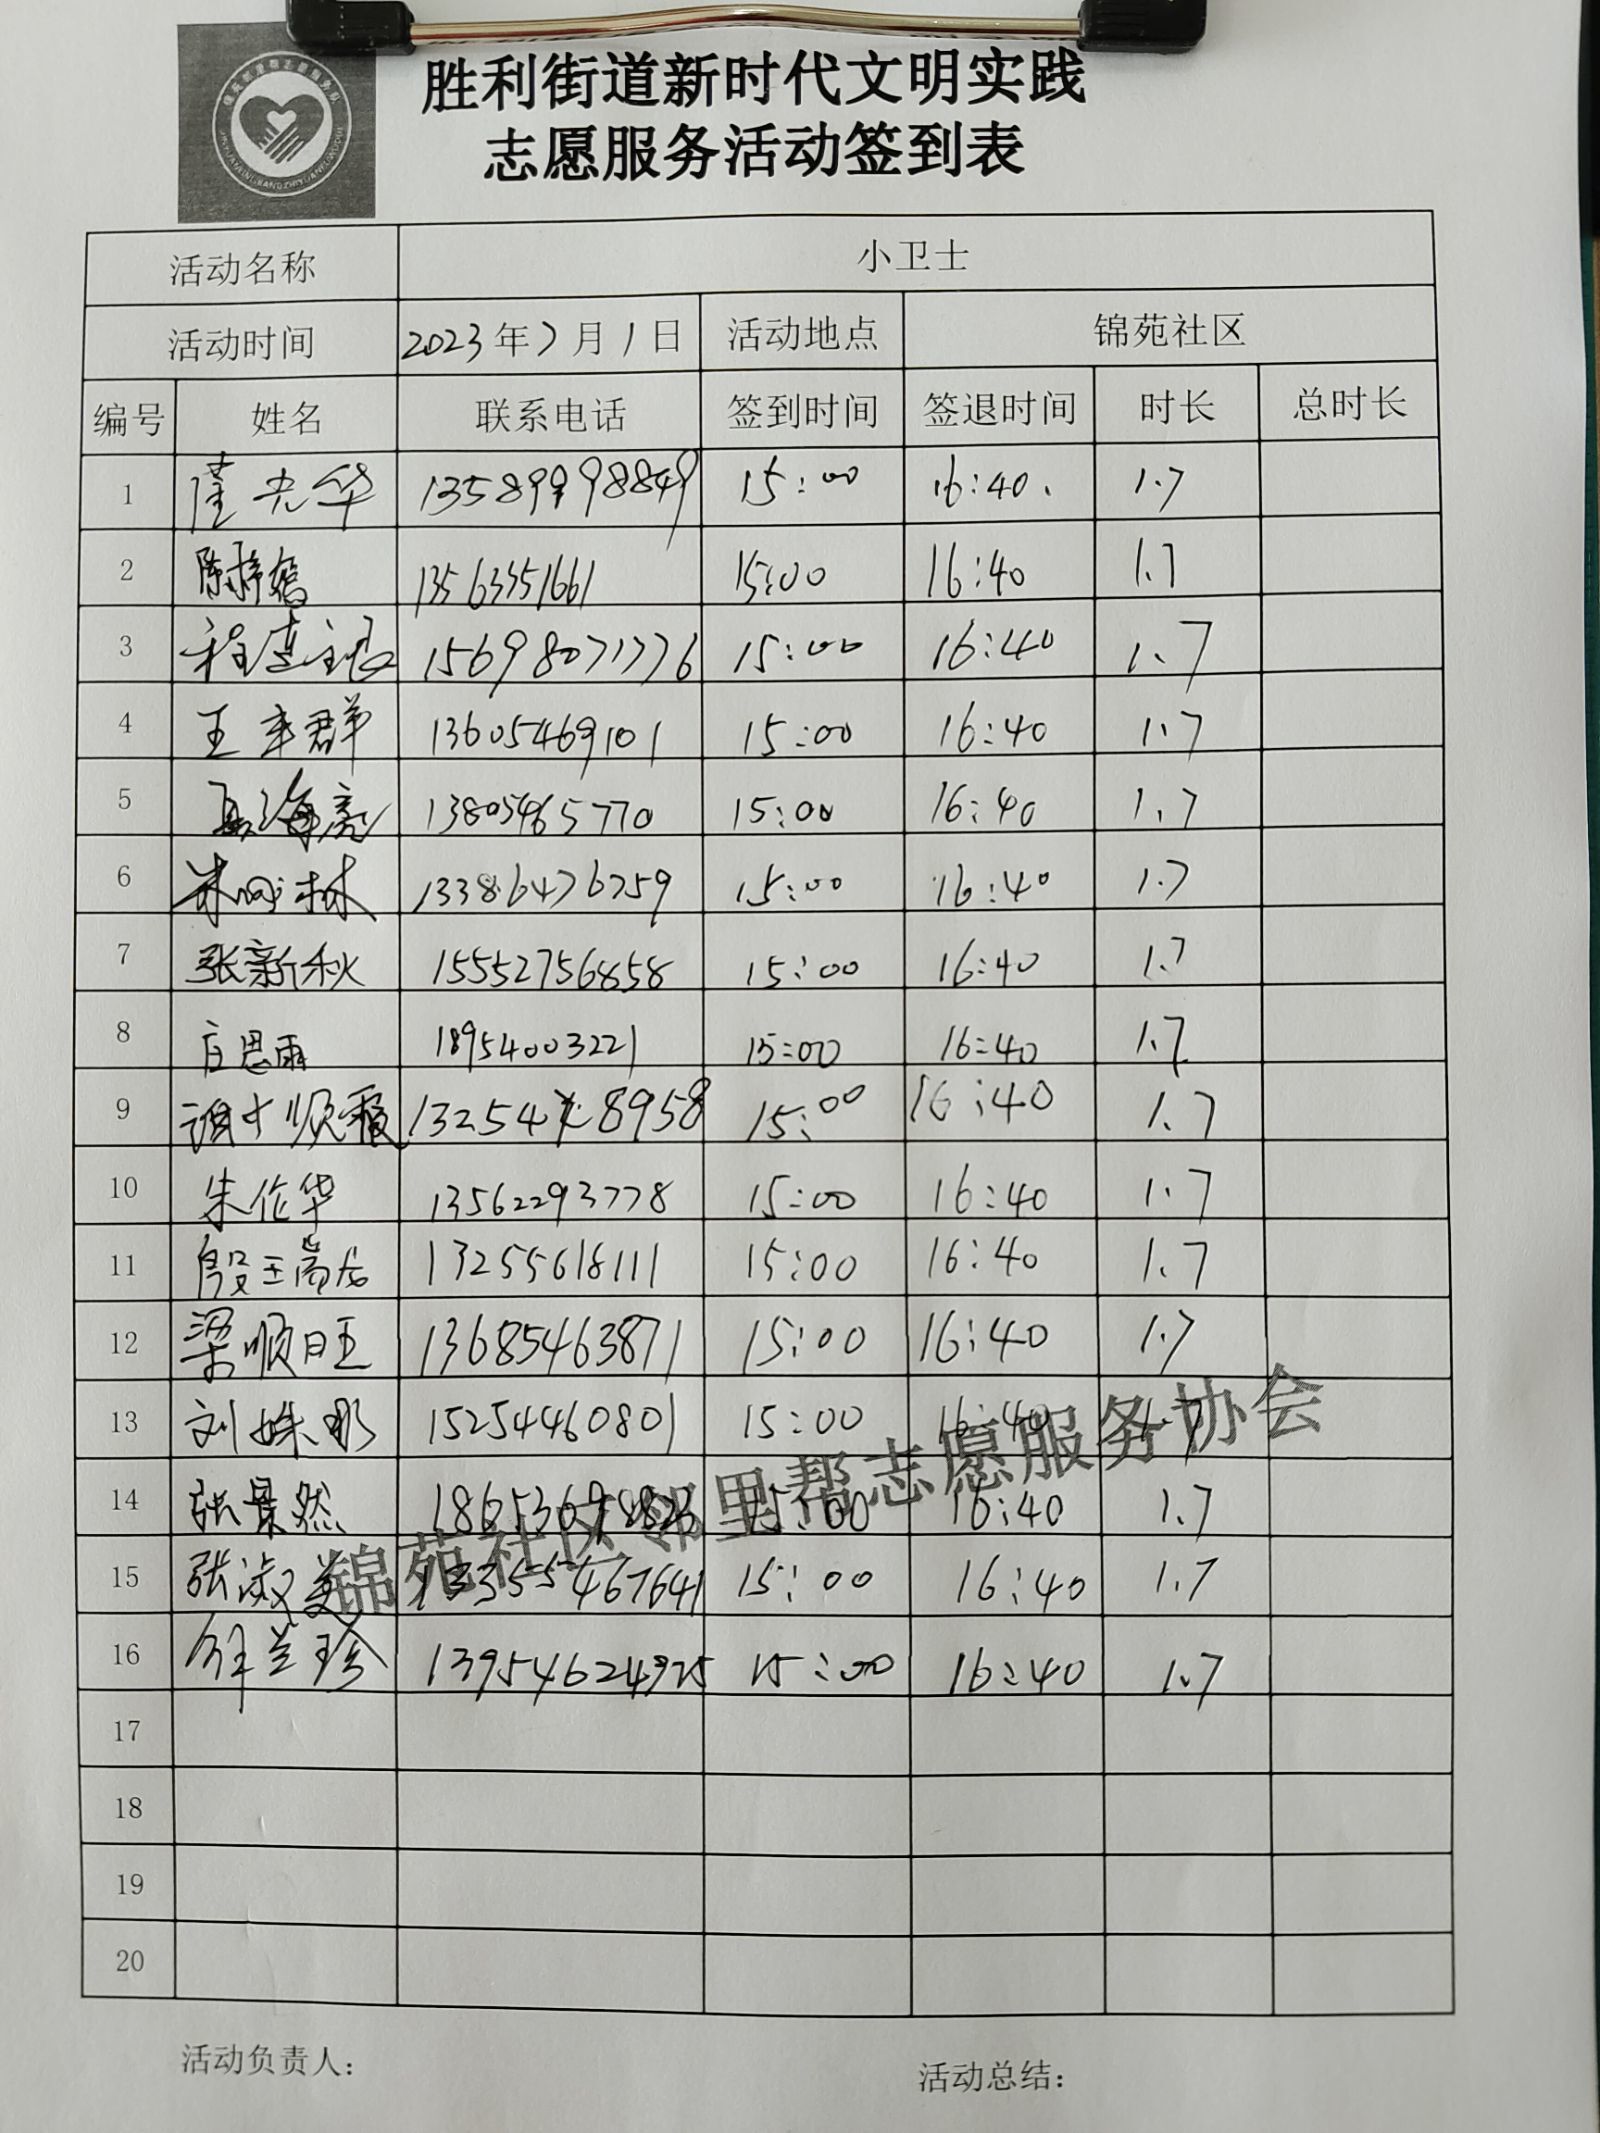 胜利街道新时代文明实践
志愿服务活动签到表
活动名称 小卫士
活动时间 2023年7月1日 活动地点 锦苑社区
编号 姓名 联系电话 签到时间 签退时间 时长 总时长
1 光华 13589998849 15:00 16:40 1.7
2 陈梓嫣 13563351661 15:00 16:40 1.7
3 15698071776 15:00 16:40 1.7
4 王丰群 13605469101 15:00 16:40 1.7
5 聂海亮 13805465770 15:00 16:40 1.7
6 林 13386476759 15:00 16:40 1.7
7 张新秋 15552756858 15:00 16:40 1.7
8 庄思雨 18954003221 15:00 16:40 1.7
9 15:00 16:40 1.7
10 朱伦华 13562293778 15:00 16:40 1.7
11 殷王尚龙 13255618111 15:00 16:40 1.7
12 梁顺旺 13685463871 15:00 16:40 1.7
13 刘姝彤 15254460801 15:00 16:40 1.7
14 张景然 15:00 16:40 1.7
15 张淑美 13355467641 15:00 16:40 1.7
16 徐兰珍 13954624925 15:00 16:40 1.7
17
18
19
20
锦苑社区邻里帮志愿服务协会
活动负责人：
活动总结：